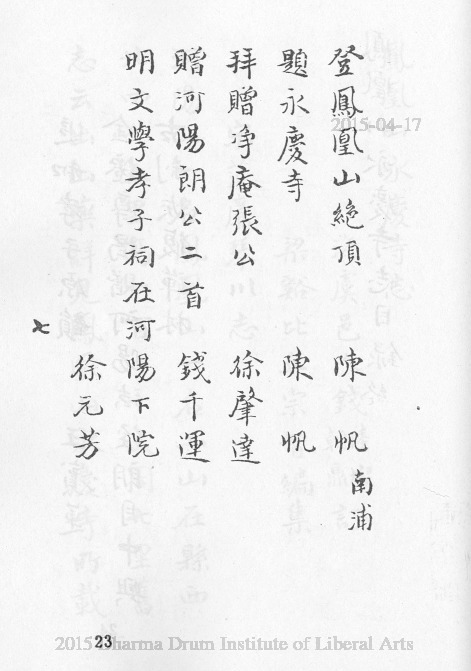 登鳳凰山絕頂 陳帆 南浦
題永慶寺 陳帆
拜贈净庵張公 徐肇達
贈河陽朗公二首 錢千運
明文學孝子祠在河陽下院
徐元芳
七
2015-04-17
23
2015 Dharma Drum Institute of Liberal Arts